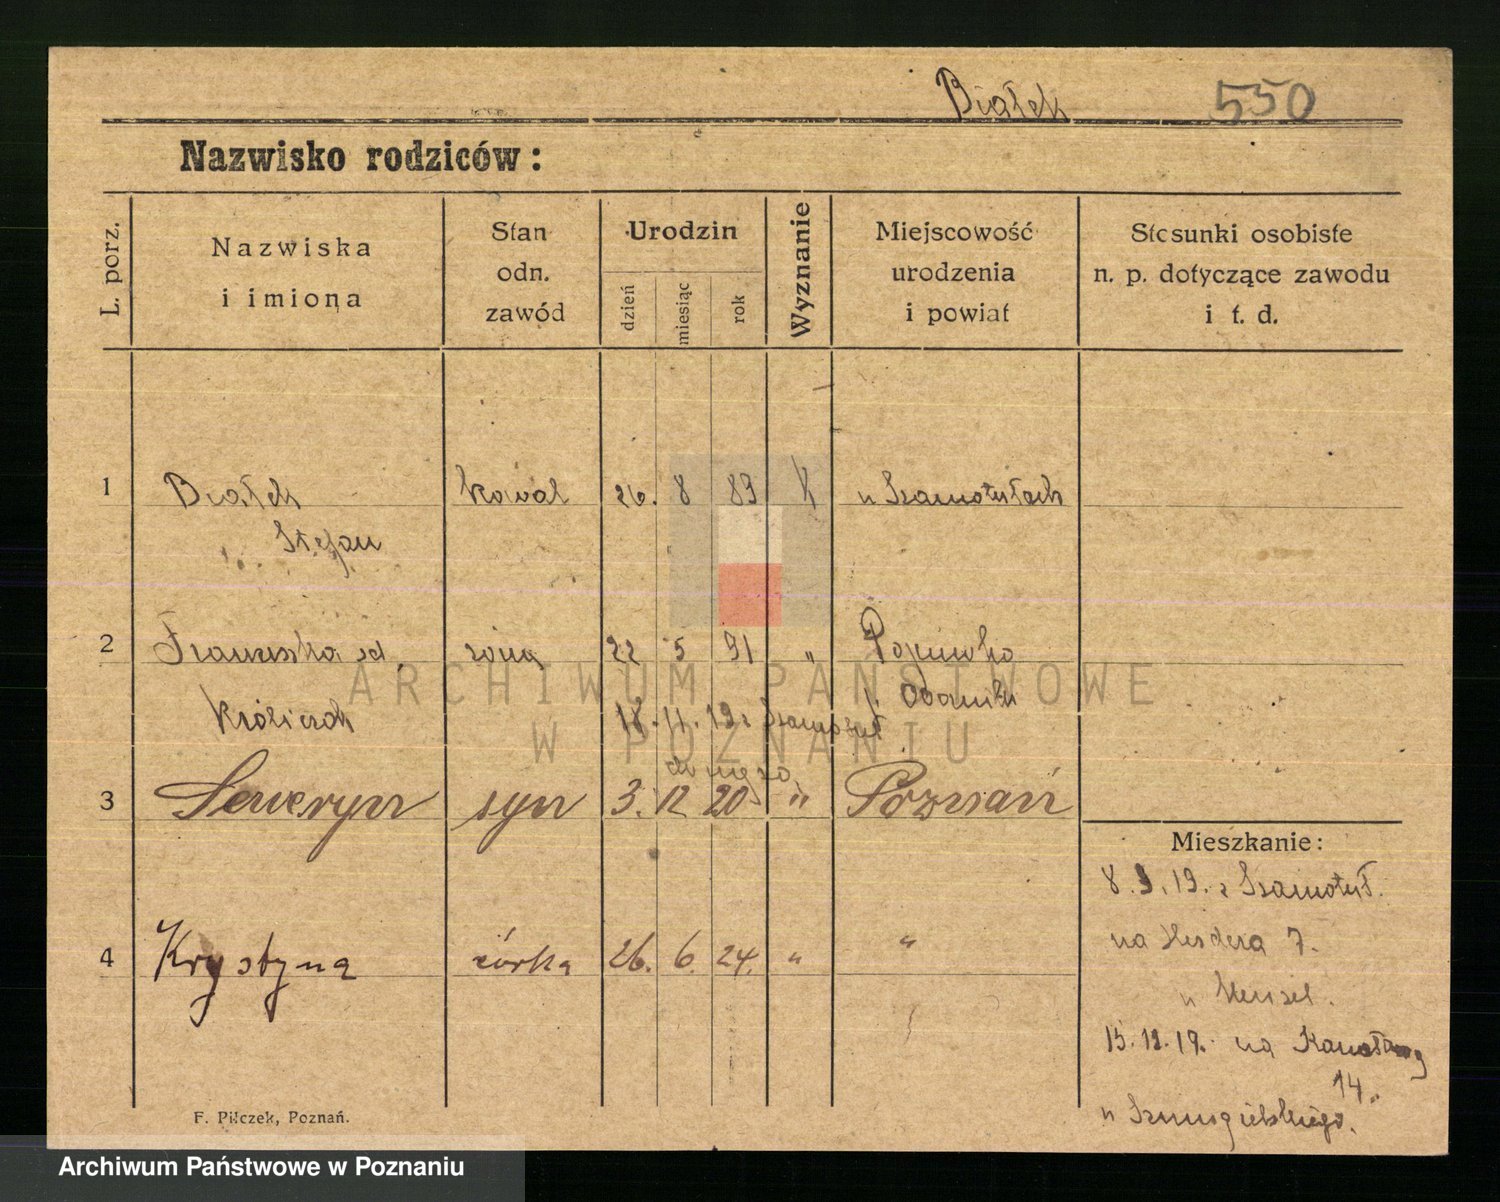 Białek 550
Nazwisko rodziców:
L. porz.
Nazwiska
i imiona
Stan
odn.
zawód
Urodzin
dzień
miesiąc
rok
Wyznanie
Miejscowość
urodzenia
i powiat
Stosunki osobiste
n. p. dotyczące zawodu
i t. d.
1 Białek kowal 26. 8 83 k w Szamotułach
Stefan
2 Franciszka żona 22 5 91 „
Obornik
18. 11. 19 z Szamotuł
do męża
3 Seweryn syn 3. 12 20 „ Poznań
4 Krystyna córka 26. 6. 24. „ „
Mieszkanie:
8. 9. 19. z Szamotuł.
na Herdera 7.
15. 12. 19. na Kanałową
14.
F. Pilczek, Poznań.
ARCHIWUM PAŃSTWOWE
W POZNANIU
Archiwum Państwowe w Poznaniu